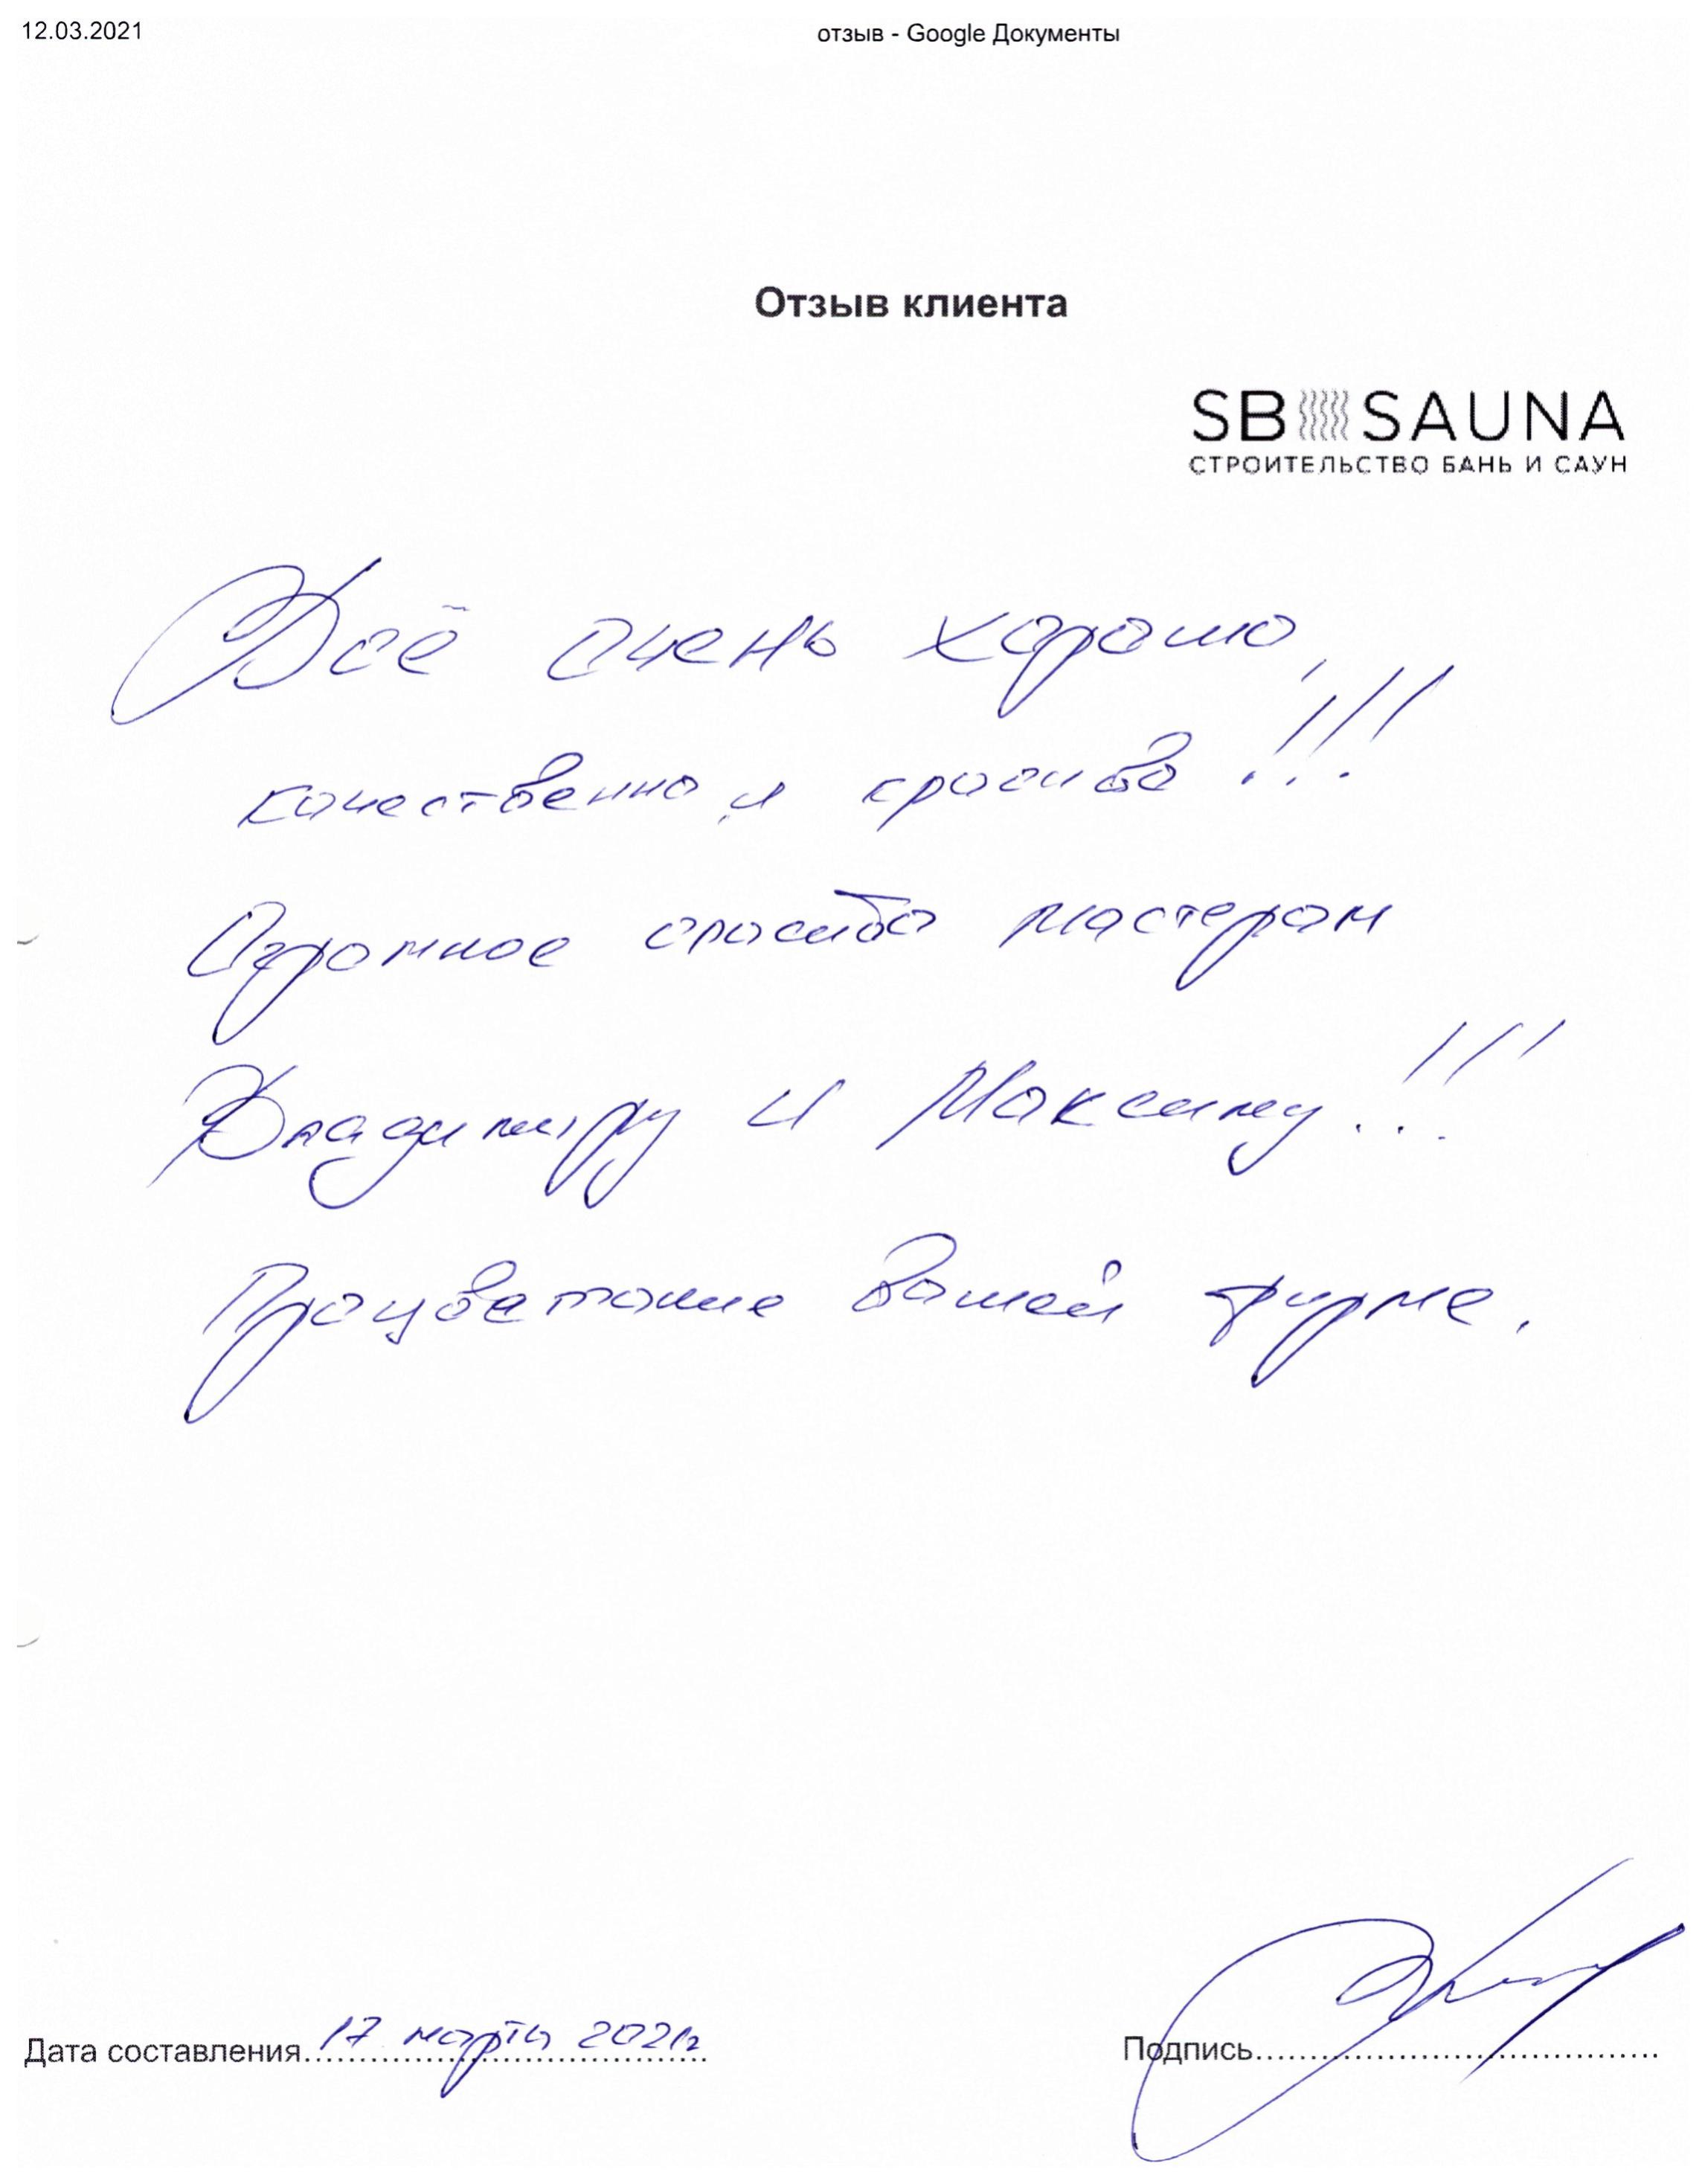 12.03.2021 отзыв - Google Документы
Отзыв клиента
SB SAUNA
СТРОИТЕЛЬСТВО БАНЬ И САУН
Всё очень хорошо,
качественно и красиво!!!
Огромное спасибо мастерам
Владимиру и Максиму!!!
Процветание вашей фирме.
Дата составления 17 марта 2021г
Подпись